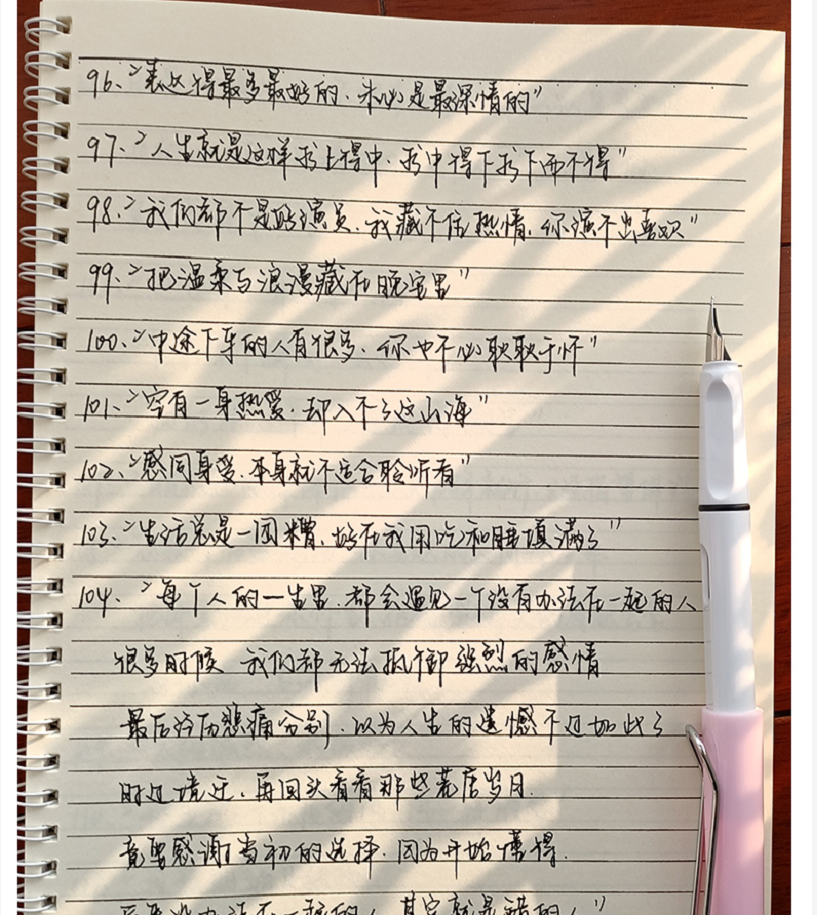 96、"表达得最多最好的、未必是最深情的"
97、"人生就是这样求上得中、求中得下求下而不得"
98、"我们都不是好演员、我藏不住热情、你演不出喜欢"
99、"把温柔与浪漫藏在晚宴里"
100、"中途下车的人有很多、你也不必耿耿于怀"
101、"空有一身热爱、却入不了这山海"
102、"感同身受、本身就不适合聆听者"
103、"生活总是一团糟、好在我用吃和睡填满了"
104、"每个人的一生里、都会遇见一个没有办法在一起的人
很多时候 我们都无法抵御强烈的感情
最后经历悲痛分别、以为人生的遗憾不过如此了
时过境迁、再回头看看那些荒唐岁月.
竟要感谢当初的选择、因为开始懂得.
没办法在一起的人 其实就是错的人"